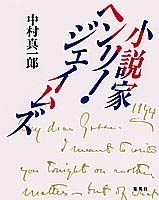 小説家
ヘンリー・
ジェイムズ
中村真一郎
1894
My dear Gosse.
I meant to write
you tonight on another
matter — but of what
集英社